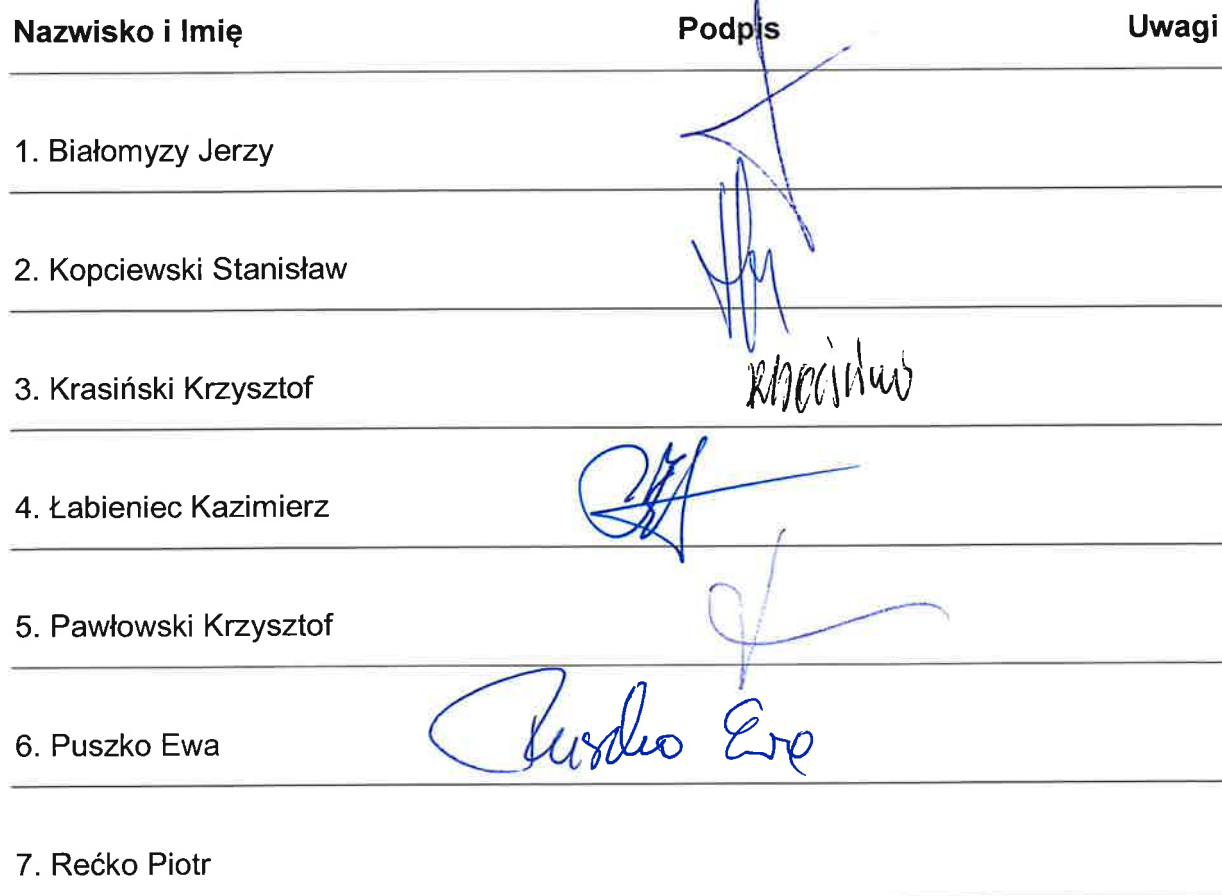 Nazwisko i Imię Podpis Uwagi
1. Białomyzy Jerzy
2. Kopciewski Stanisław
3. Krasiński Krzysztof
4. Łabieniec Kazimierz
5. Pawłowski Krzysztof
6. Puszko Ewa Puszko Ewa
7. Rećko Piotr